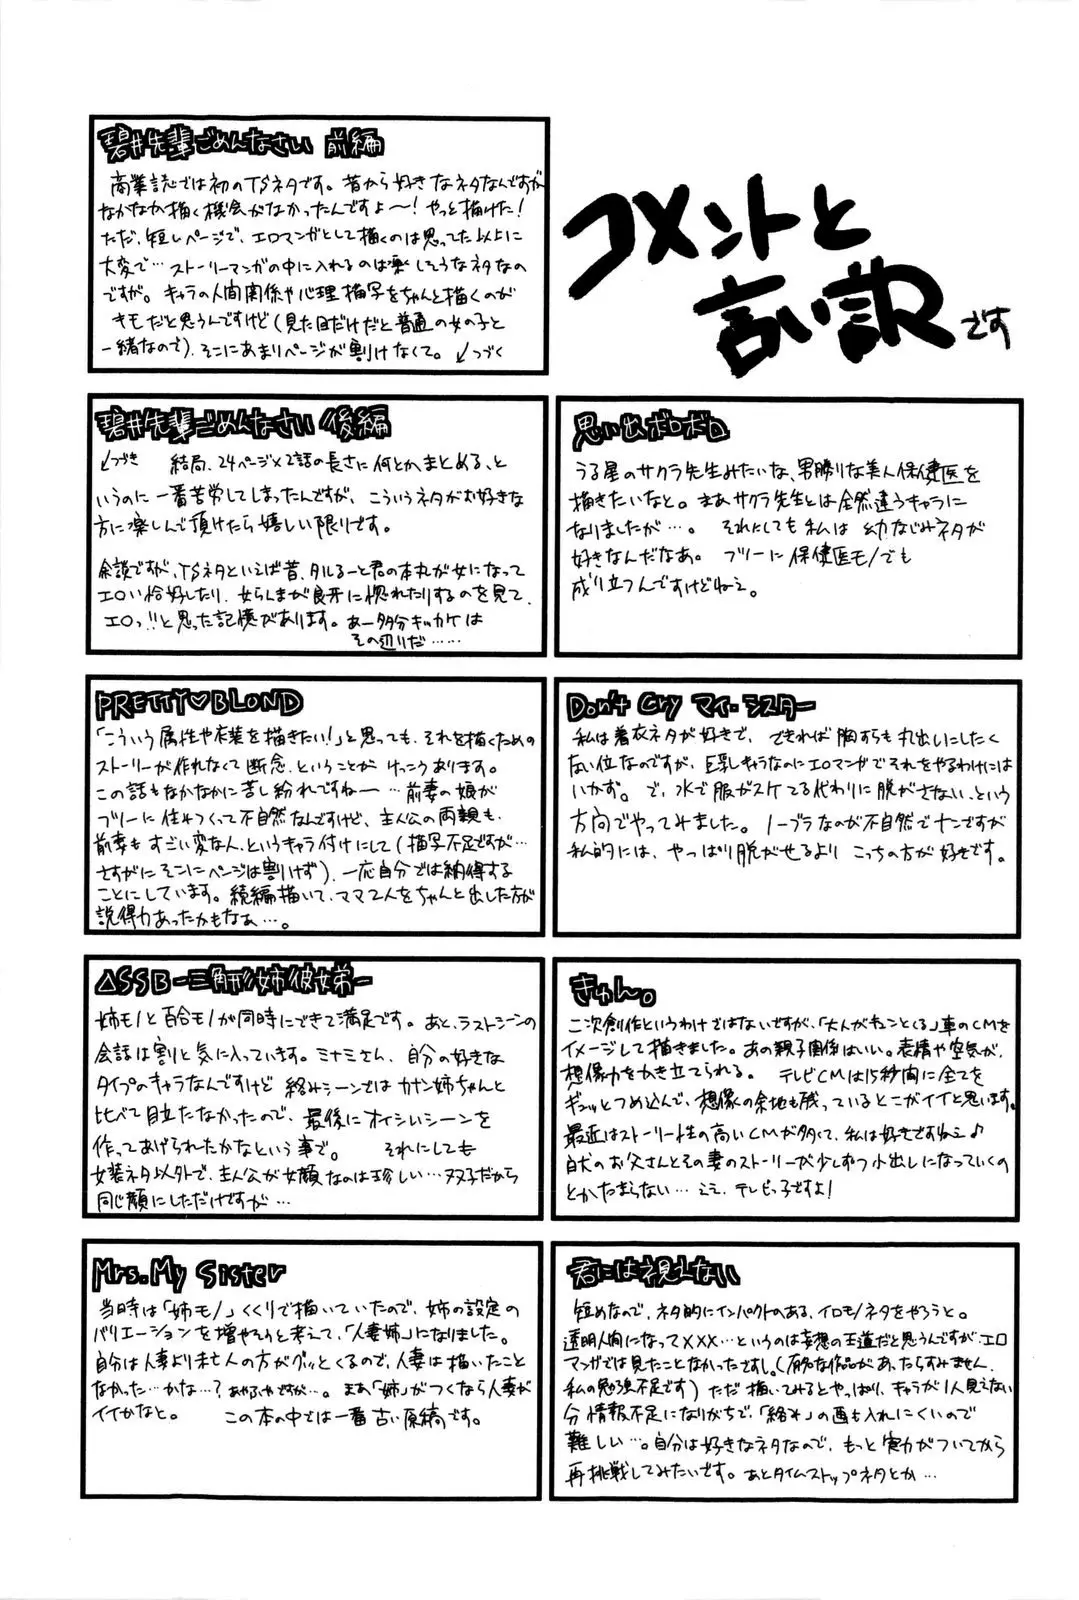 コメントと
言い訳です
碧井先輩ごめんなさい 前編
商業誌では初のTSネタです。昔から好きなネタなんですが
なかなか描く機会がなかったんですよ〜!やっと描けた!
ただ、短いページで、エロマンガとして描くのは思ってた以上に
大変で…ストーリーマンガの中に入れるのは楽しそうなネタなの
ですが。キャラの人間関係や心理描写をちゃんと描くのが
キモだと思うんですけど(見た目だけだと普通の女の子と
一緒なので)、そこにあまりページが割けなくて。↙つづく
碧井先輩ごめんなさい 後編
↙つづき 結局、24ページ×2話の長さに何とかまとめる、と
いうのに一番苦労してしまったんですが、こういうネタがお好きな
方に楽しんで頂けたら嬉しい限りです。
余談ですが、TSネタといえば昔、タルるート君の本丸が女になって
エロい恰好したり、女らんまが良牙に惚れたりするのを見て、
エロっ!!と思った記憶があります。あー多分キッカケは
その辺りだ……
思い出ボロボロ
うる星のサクラ先生みたいな、男勝りな美人保健医を
描きたいなと。まあサクラ先生とは全然違うキャラに
なりましたが…。それにしても私は幼なじみネタが
好きなんだなあ。フツーに保健医モノでも
成り立つんですけどねえ。
PRETTY♡BLOND
「こういう属性や衣装を描きたい!」と思っても、それを描くための
ストーリーが作れなくて断念、ということがけっこうあります。
この話もなかなかに苦し紛れですね〜…前妻の娘が
フツーに住みつくって不自然なんですけど、主人公の両親も、
前妻もすごい変な人、というキャラ付けにして(描写不足ですが…
さすがにそこにページは割けず)、一応自分では納得する
ことにしています。続編描いて、ママ2人をちゃんと出した方が
説得力あったかもなぁ…。
Don't Cry マイ・シスター
私は着衣ネタが好きで、できれば胸すらも丸出しにしたく
ない位なのですが、巨乳キャラなのにエロマンガでそれをやるわけには
いかず。で、水で服がスケてる代わりに脱がさない、という
方向でやってみました。ノーブラなのが不自然でナンですが
私的には、やっぱり脱がせるよりこっちの方が好きです。
△SSB-三角形姉彼妹-
姉モノと百合モノが同時にできて満足です。あと、ラストシーンの
会話は割と気に入っています。ミナミさん、自分の好きな
タイプのキャラなんですけど絡みシーンではカナン姉ちゃんと
比べて目立たなかったので、最後にオイシイシーンを
作ってあげられたかなという事で。それにしても
女装ネタ以外で、主人公が女顔なのは珍しい…双子だから
同じ顔にしただけですが…
きゅん。
二次創作というわけではないですが、「大人がキュンとくる」車のCMを
イメージして描きました。あの親子関係はいい。表情や空気が、
想像力をかき立てられる。テレビCMは15秒間に全てを
ギュッとつめ込んで、想像の余地も残っているとこがイイと思います。
最近はストーリー性の高いCMが多くて、私は好きですねえ♪
白犬のお父さんとその妻のストーリーが少しずつ小出しになっていくの
とかたまらない…ええ、テレビっ子ですよ!
Mrs. My Sister
当時は「姉モノ」くくりで描いていたので、姉の設定の
バリエーションを増やそうと考えて、「人妻姉」になりました。
自分は人妻より未亡人の方がグッとくるので、人妻は描いたこと
なかった…かな…?あやふやですが…。まあ「姉」がつくなら人妻が
イイかなと。この本の中では一番古い原稿です。
君には視えない
短めなので、ネタ的にインパクトのある、イロモノネタをやろうと。
透明人間になって×××…というのは妄想の王道だと思うんですが、エロ
マンガでは見たことなかったですし。(有名な作品があったらすみません、
私の勉強不足です)ただ描いてみるとやっぱり、キャラが1人見えない
分情報不足になりがちで、「絡み」の画も入れにくいので
難しい…。自分は好きなネタなので、もっと実力がついてから
再挑戦してみたいです。あとタイムストップネタとか…